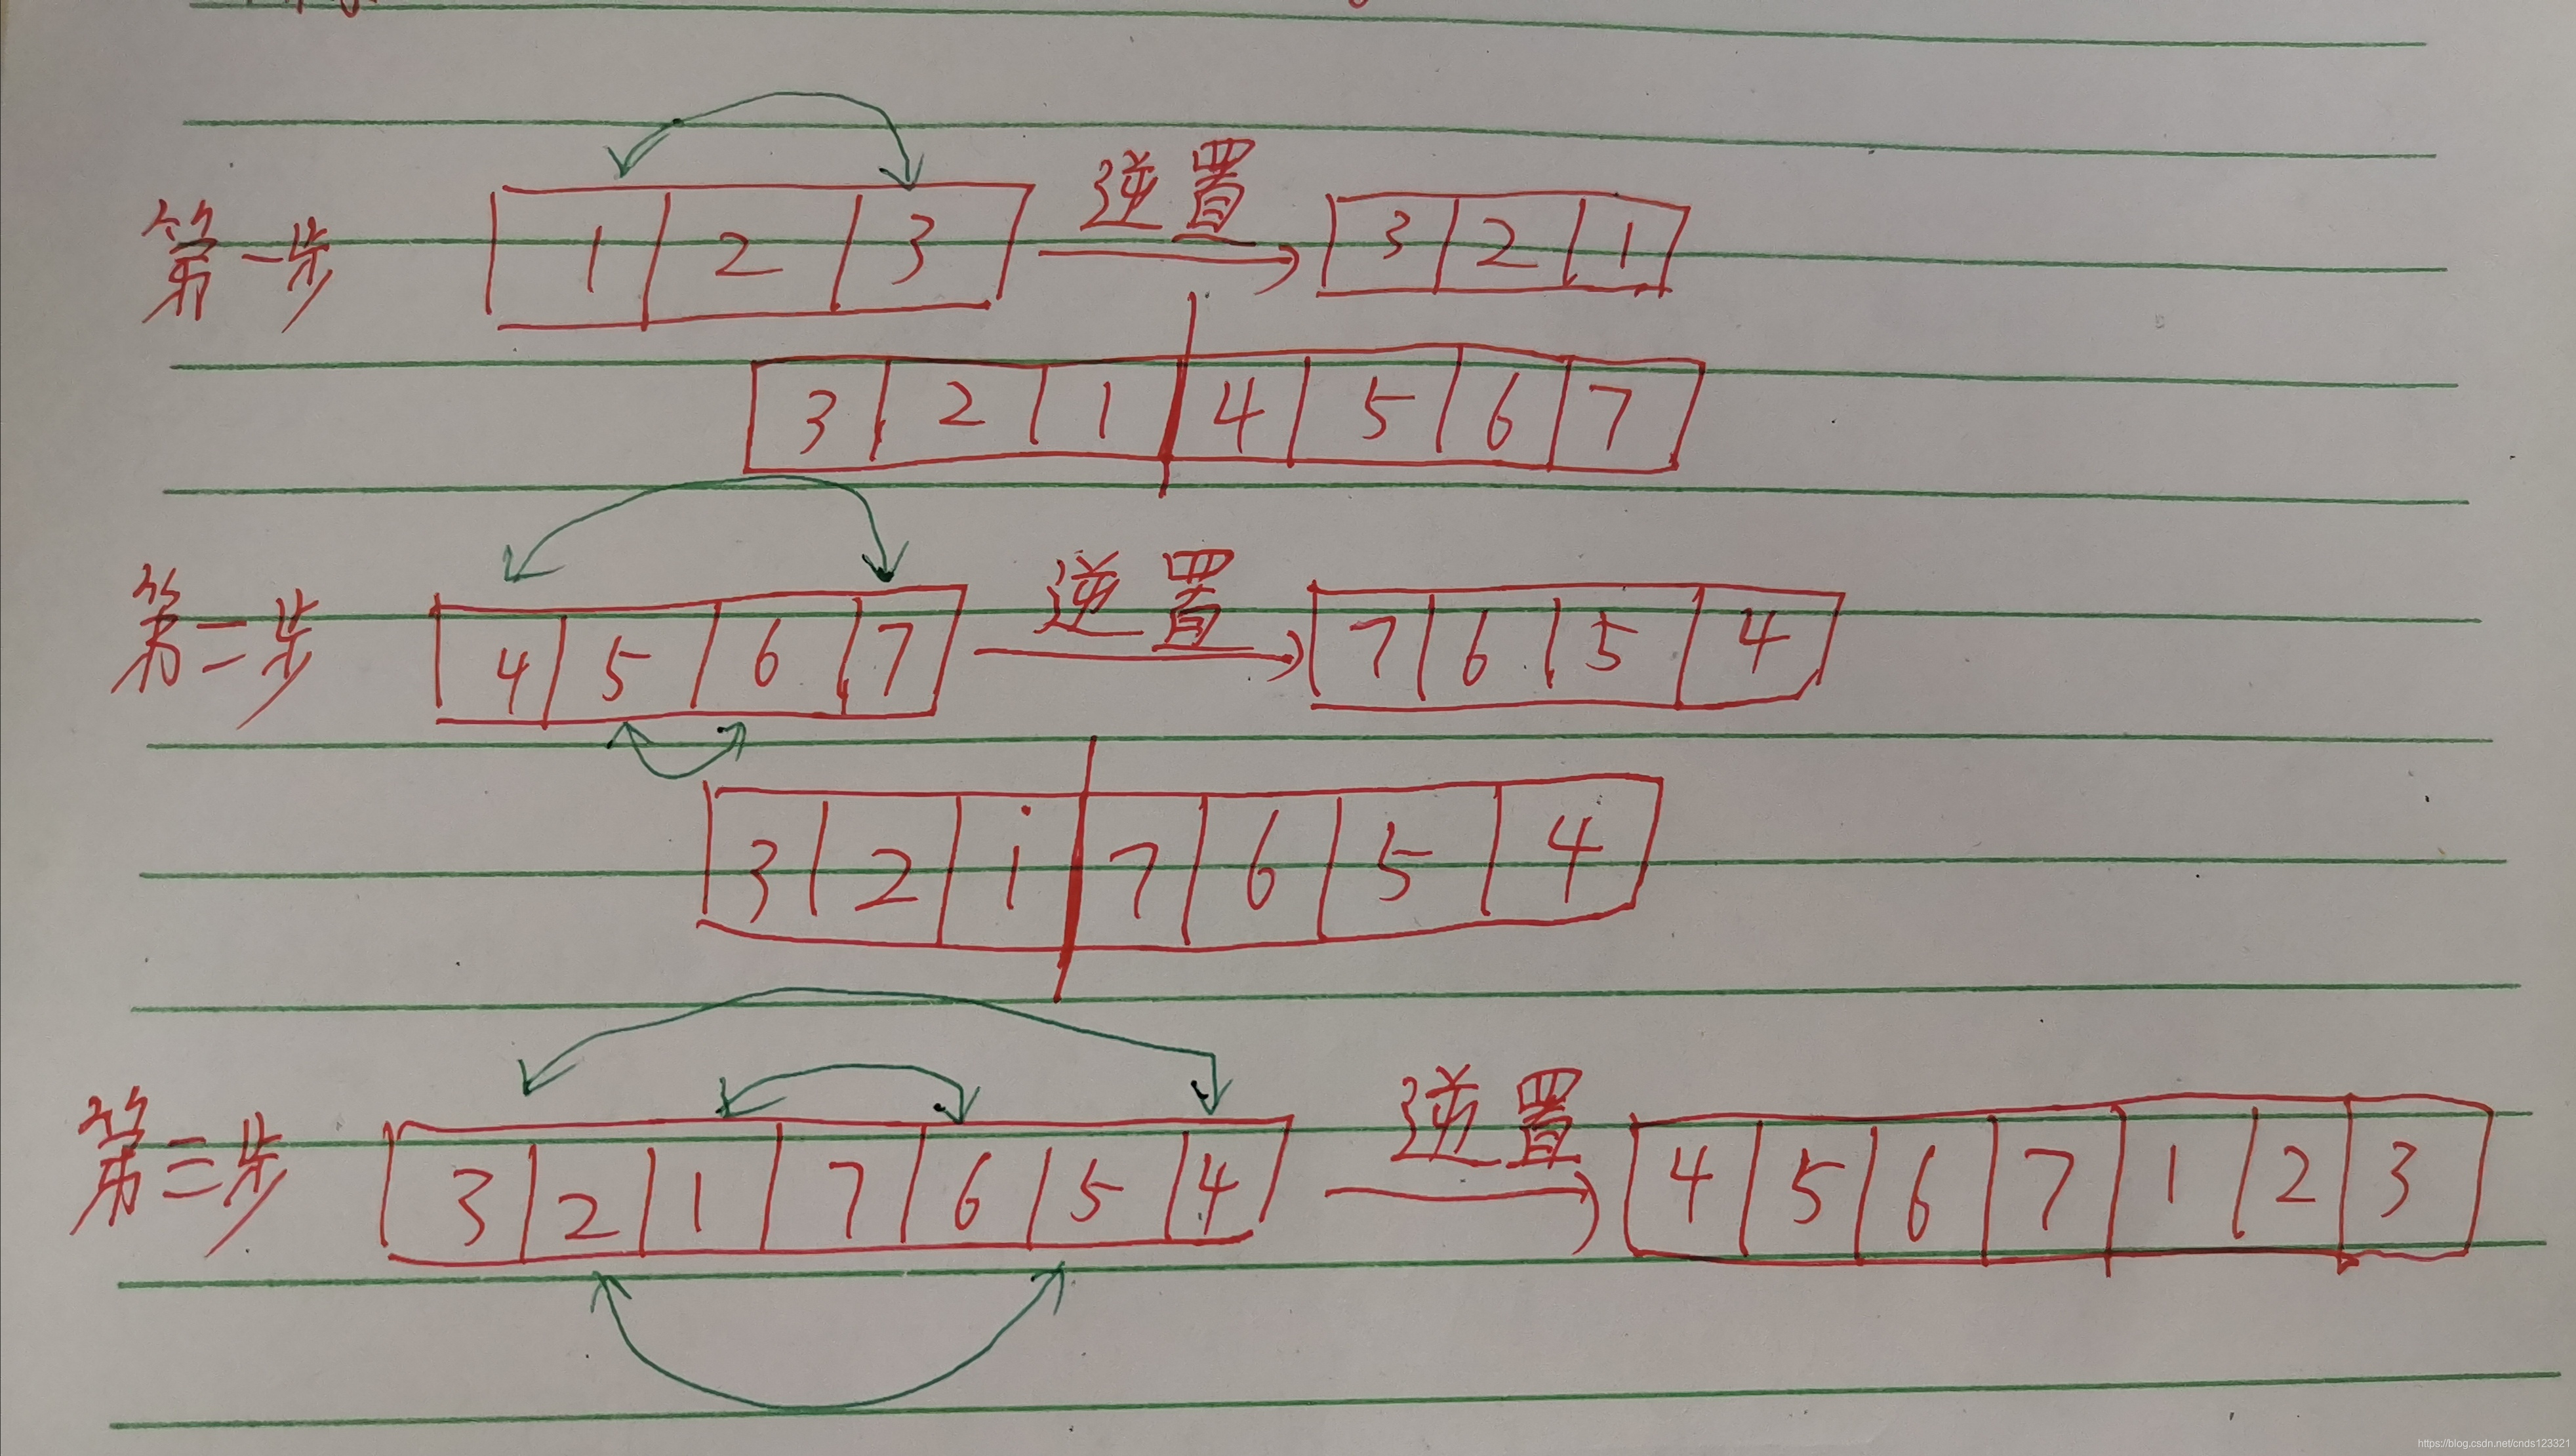 第一步 1 2 3 逆置 3 2 1
3 2 1 4 5 6 7
第二步 4 5 6 7 逆置 7 6 5 4
3 2 1 7 6 5 4
第三步 3 2 1 7 6 5 4 逆置 4 5 6 7 1 2 3
https://blog.csdn.net/cnds123321